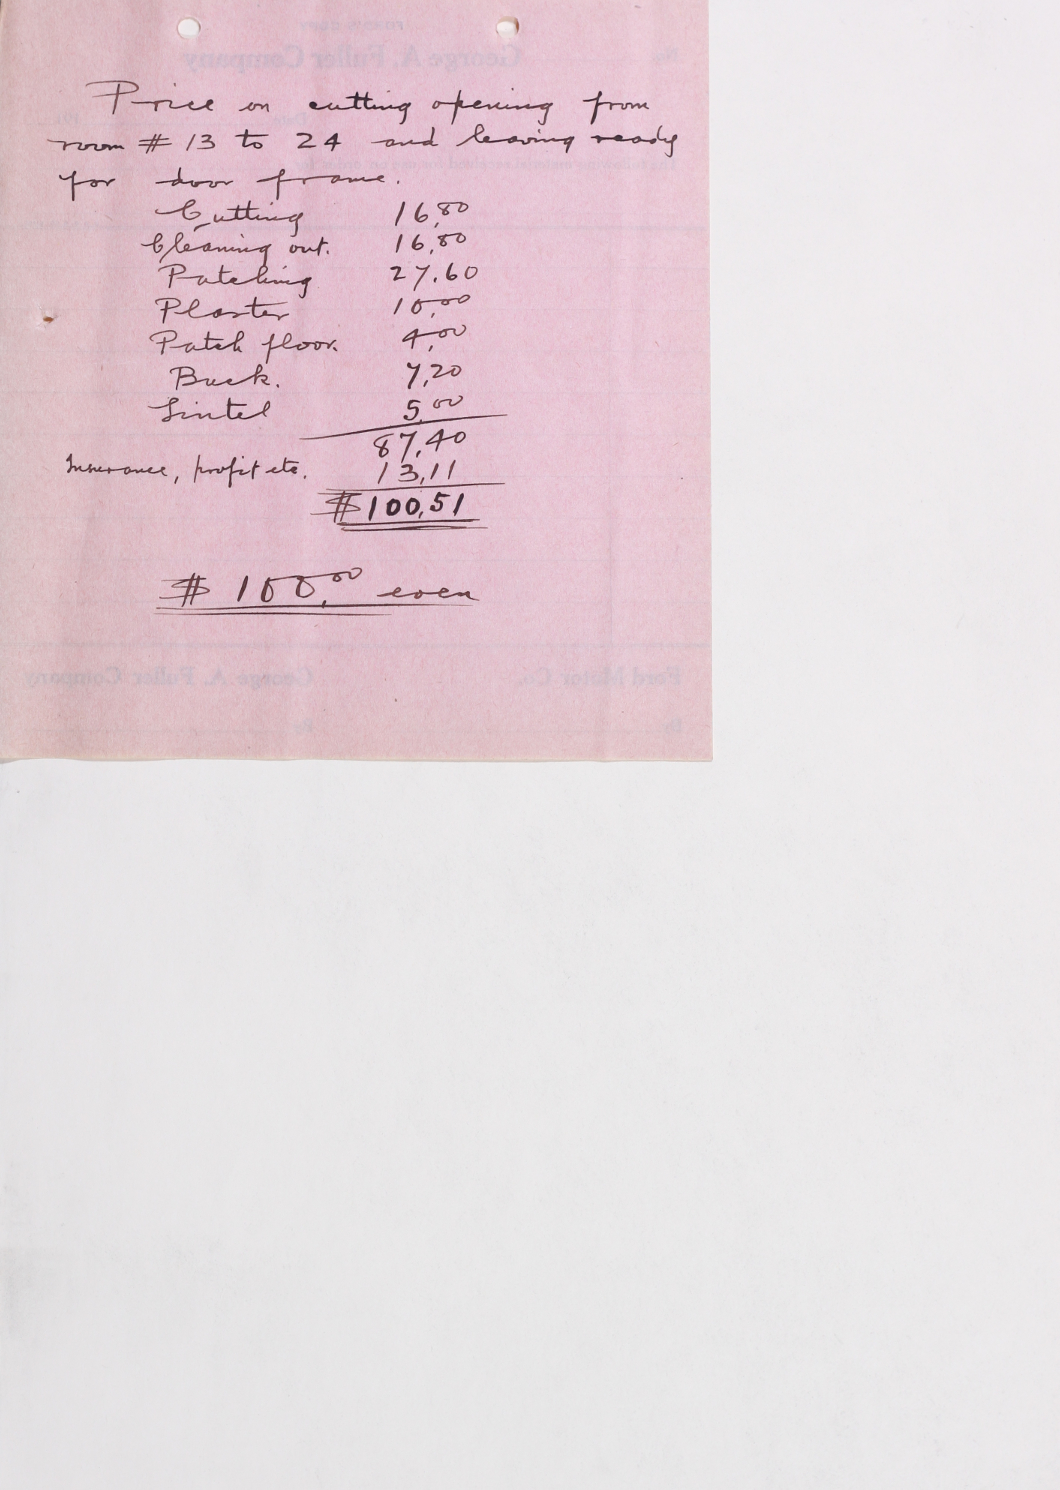 Price on cutting opening from
room # 13 to 24 and leaving ready
for door frame.
Cutting 16,80
Cleaning out. 16,80
Patching 27.60
Plaster 10,00
Patch floor. 4,00
Buck. 7,20
Lintel 5,00
87,40
Insurance, profit etc. 13,11
$100,51
$ 100,00 even
George A. Fuller Company
Ford Motor Co. George A. Fuller Company
By By